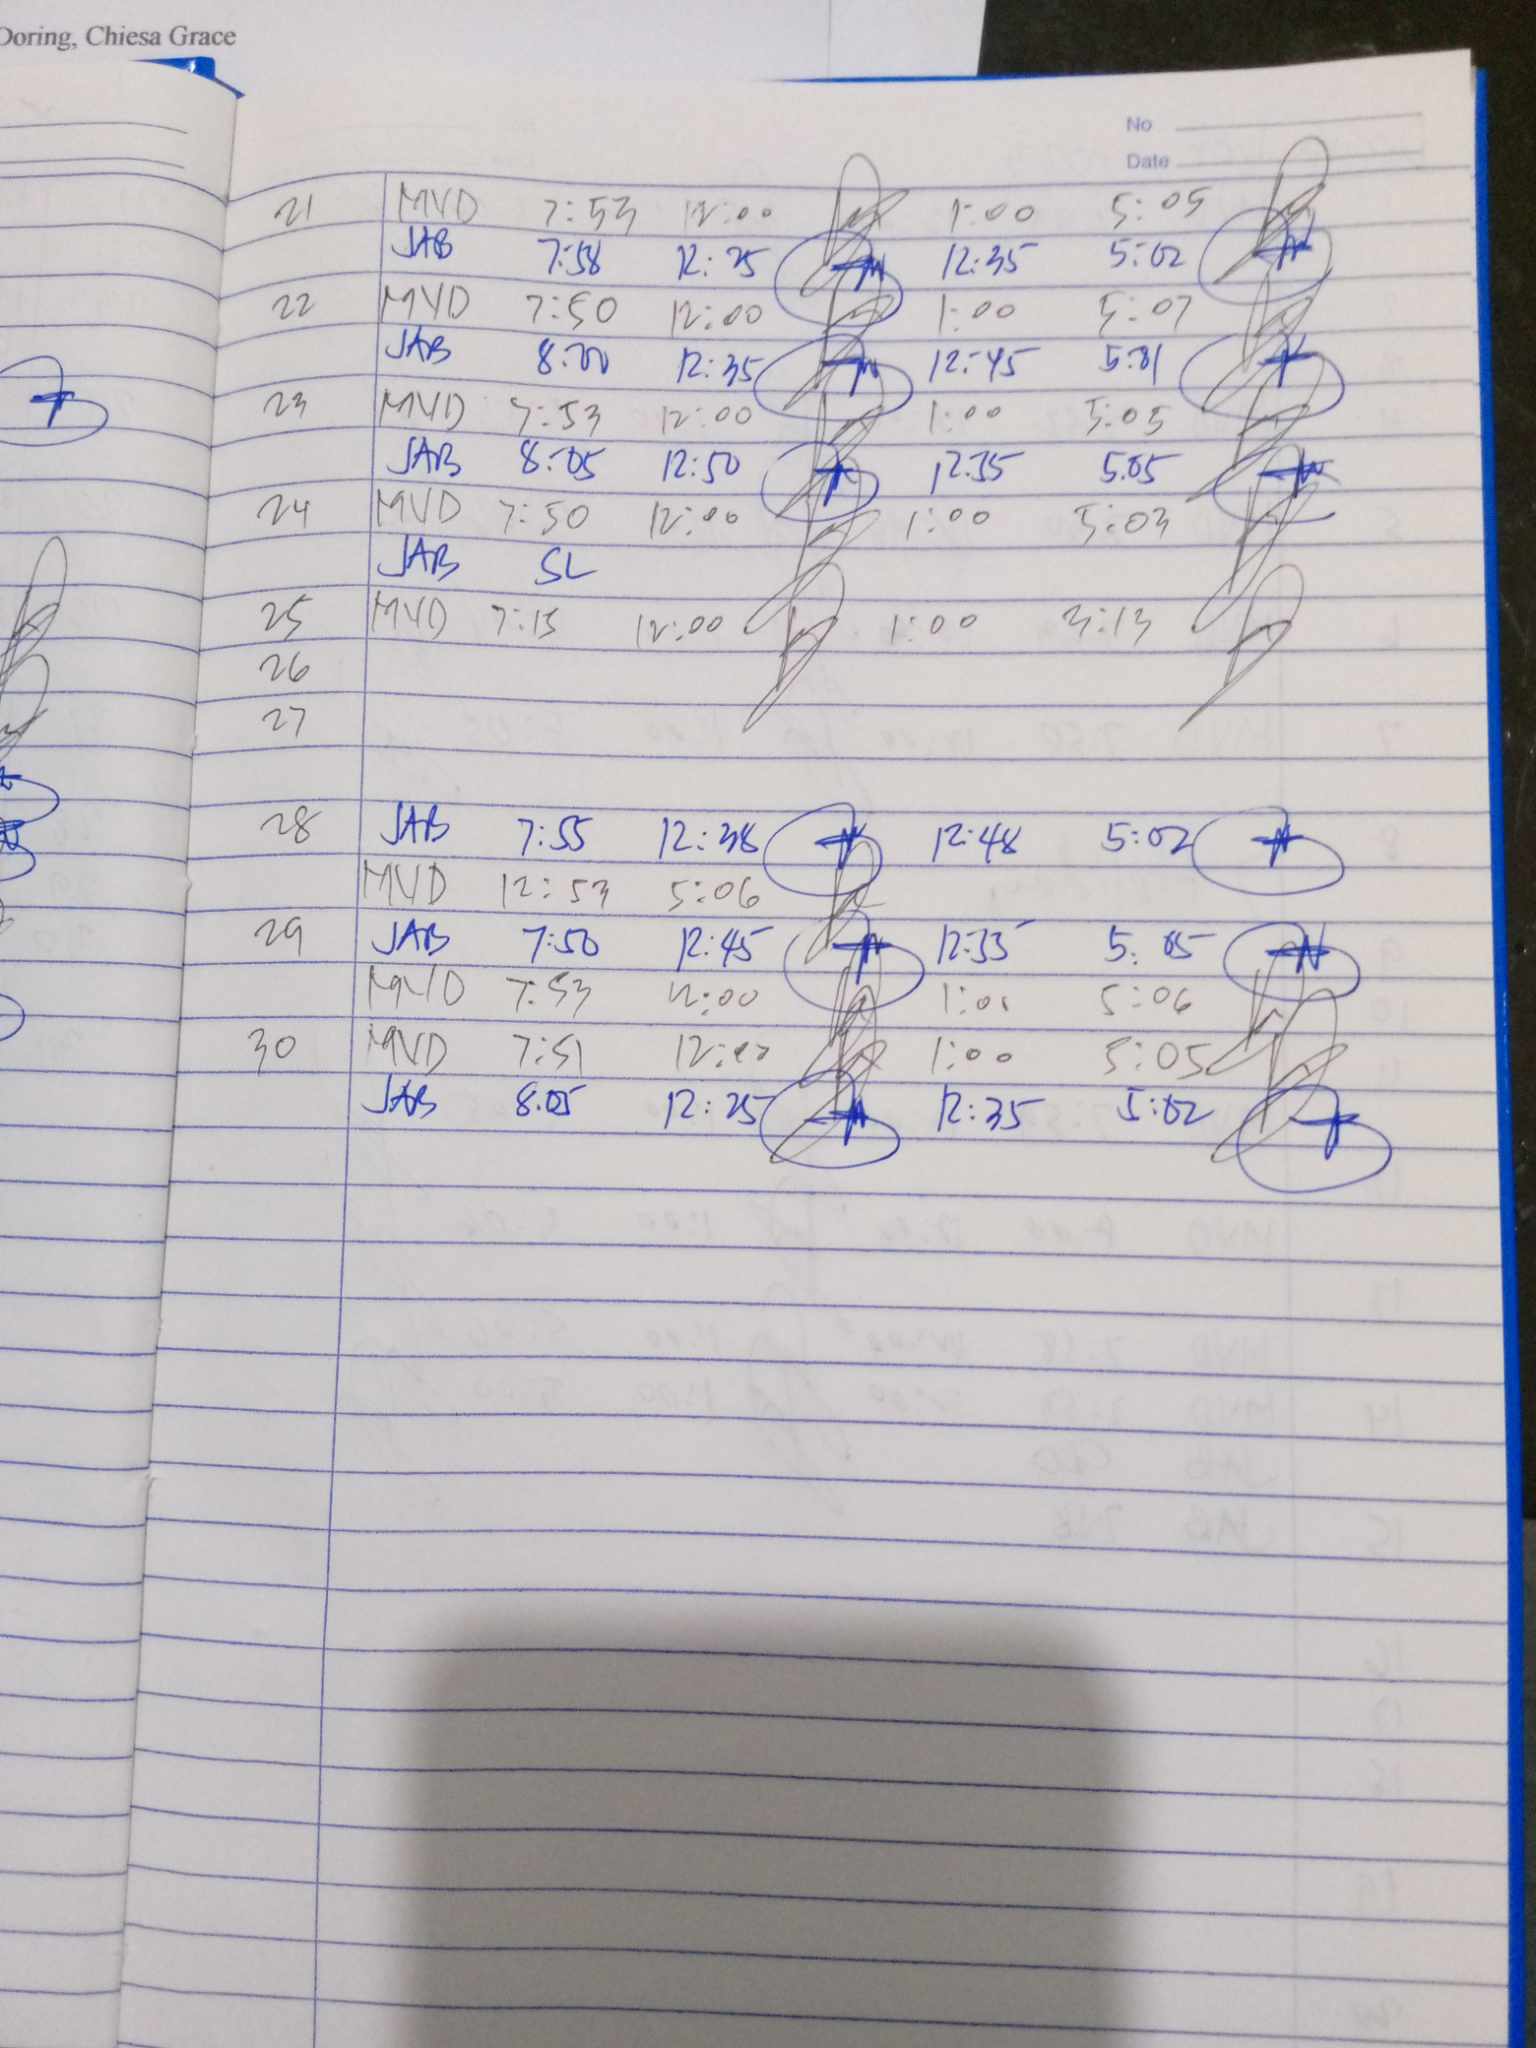 Doring, Chiesa Grace
No
Date
21 MVD 7:53 12:00 1:00 5:05
JAB 7:58 12:25 12:35 5:02
22 MVD 7:50 12:00 1:00 5:07
JAB 8:00 12:35 12:45 5:01
23 MVD 7:53 12:00 1:00 5:05
JAB 8:05 12:50 12:55 5:05
24 MVD 7:50 12:00 1:00 5:03
JAB SL
25 MVD 7:15 12:00 1:00 3:13
26
27
28 JAB 7:55 12:38 12:48 5:02
MVD 12:53 5:06
29 JAB 7:50 12:45 12:55 5:05
MVD 7:53 12:00 1:01 5:06
30 MVD 7:51 12:00 1:00 5:05
JAB 8:05 12:25 12:35 5:02